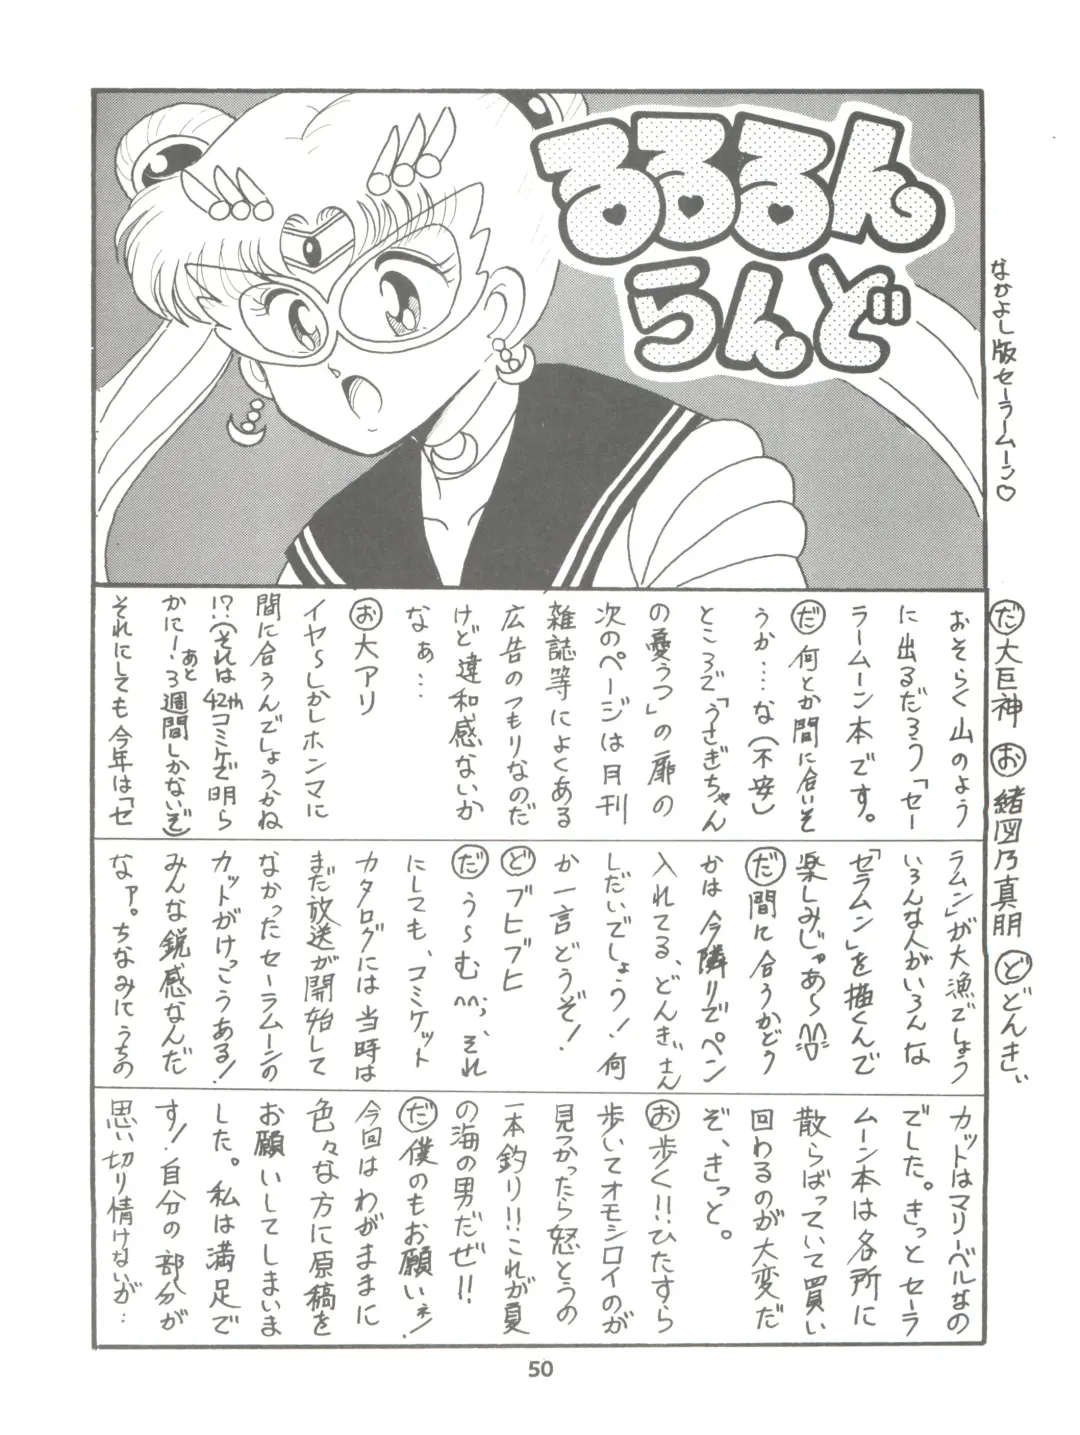 るるるん
らんど
なかよし版セーラームーン♡
だ大巨神 お緒図乃真朋 どどんきぃ
おそらく山のよう
に出るだろう「セー
ラームーン本です。
だ何とか間に合いそ
うか…な(不安)
ところで「うさぎちゃん
の憂うつ」の扉の
次のページは月刊
雑誌等によくある
広告のつもりなのだ
けど違和感ないか
なぁ…
お大アリ
イヤ〜しかしホンマに
間に合うんでしょうかね
!?(それは42thコミケで明ら
かに!あと3週間しかないぞ)
それにしても今年は「セ
ラムン」が大漁でしょう
いろんな人がいろんな
「セラムン」を描くんで
楽しみじゃあ〜
だ間に合うかどう
かは今隣りでペン
入れてる、どんきぃさん
しだいでしょう!何
か一言どうぞ!
どブヒブヒ
だう〜む^^;、それ
にしても、コミケット
カタログには当時は
まだ放送が開始して
なかったセーラムーンの
カットがけっこうある!
みんな鋭感なんだ
なァ。ちなみにうちの
カットはマリーベルなの
でした。きっとセーラ
ムーン本は各所に
散らばっていて買い
回わるのが大変だ
ぞ、きっと。
お歩く!!ひたすら
歩いてオモシロイのが
見つかったら怒とうの
一本釣り!!これが夏
の海の男だぜ!!
だ僕のもお願いネ!
今回はわがままに
色々な方に原稿を
お願いしてしまいま
した。私は満足で
す!自分の部分が
思い切り情けないが…
50